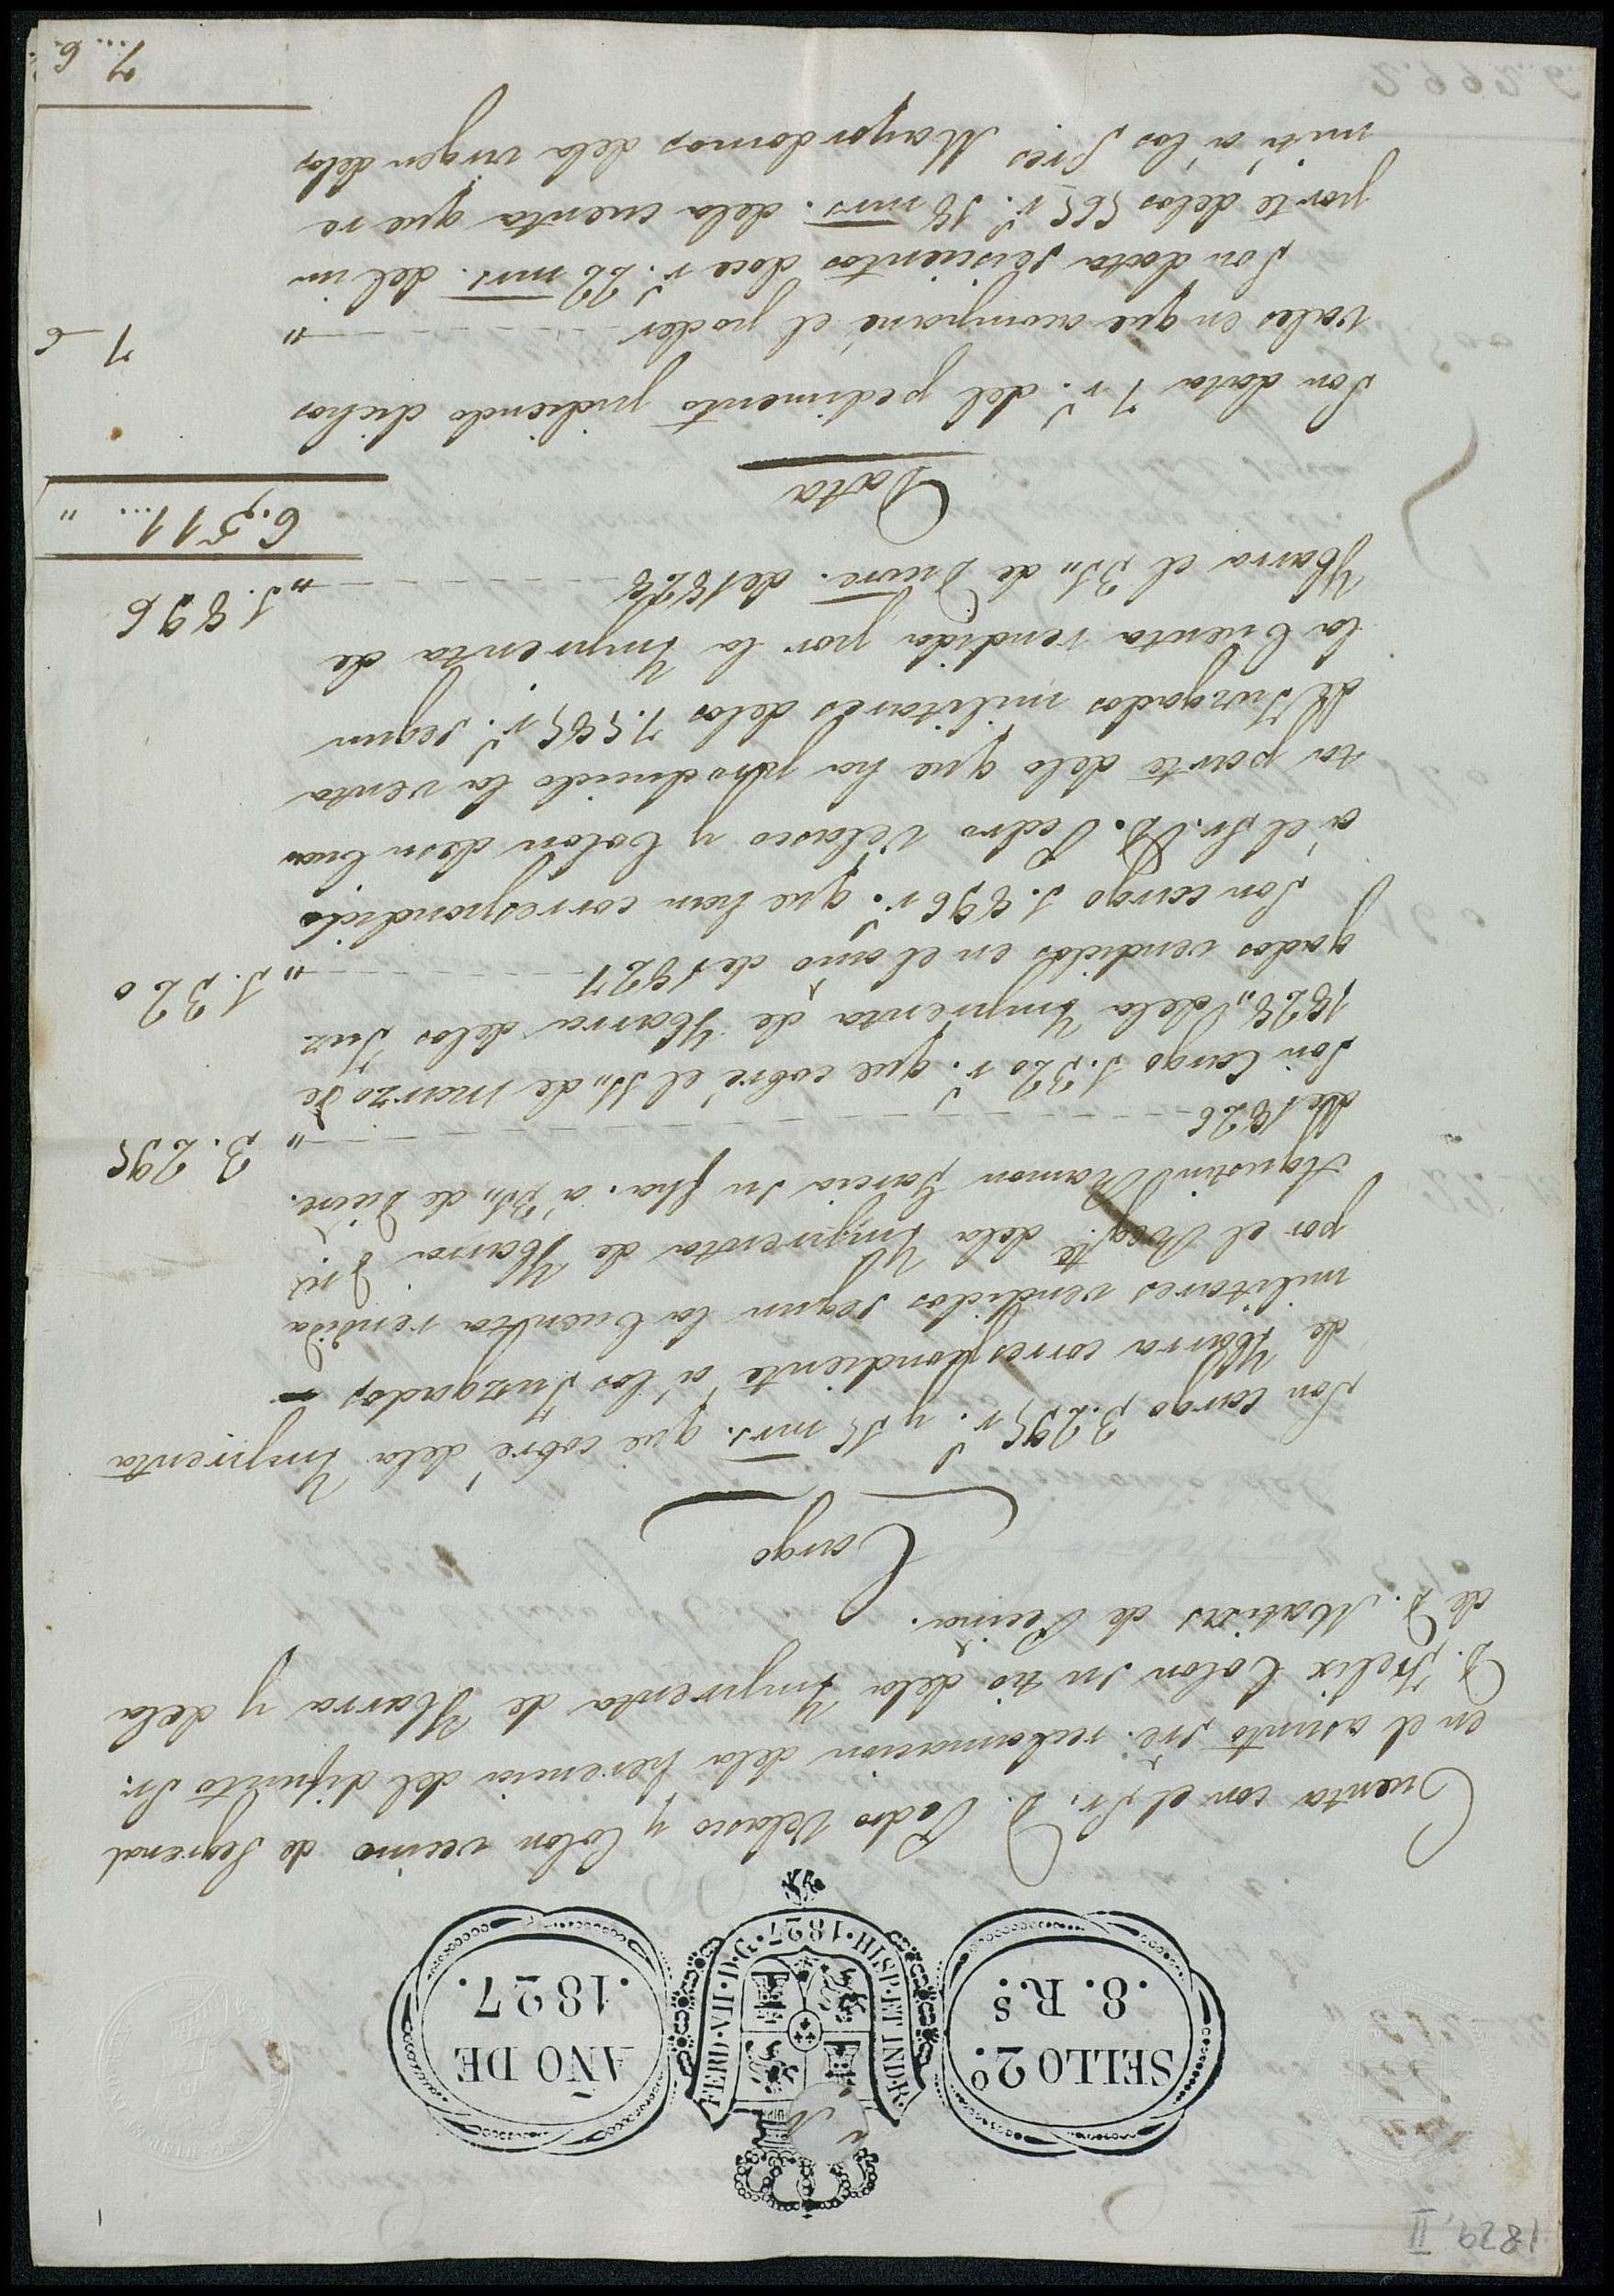 1829, II
SELLO 2º
.8. R.s
FERD·VII·D·G·1827·HISP·ET IND·R·
AÑO DE
.1827.
Cuenta con el Sr. D. Pedro Velasco y Colon vecino de Fegrenal
en el asunto sre. reclamacion dela herencia del difunto Sr.
D. Felix Colon su tio dela Imprenta de Ybarra y dela
de D. Matias de Pecina.
Cargo
Son cargo 3.295 r.s y 15 mrs. que cobré dela Imprenta
de Ybarra correspondiente á los Juzgados
militares vendidos segun la Cuenta rendida
por el Regte. dela Imprenta de Ybarra Dn.
Agustin Ramon Garcia su fha. á 31,, de Dicre.
de 1826 " 3.295
Son Cargo 1.320 r.s que cobré el 11,, de marzo de
1828,, dela Imprenta de Ybarra delos Juz
gados vendidos en el año de 1827 " 1.320
Son cargo 1.896 r.s que han correspondido
á el Sr. D. Pedro Velasco y Colon desu Cuar
ta parte delo que ha producido la venta
de Juzgados militares delos 7.585 r.s segun
la Cuenta rendida por la Imprenta de
Ybarra el 31,, de Dicre. de 1828 " 1.896
6.511 ... "
Data
Son data 7 r.s del pedimento pidiendo dichos
vales en que acompañé el poder " 7-6
Son data seiscientos doce r.s 22 mrs. del im
porte delos 565 r.s 18 mrs. dela cuenta que re
mití á los Sres Mayordomos dela virgen delos
7...6